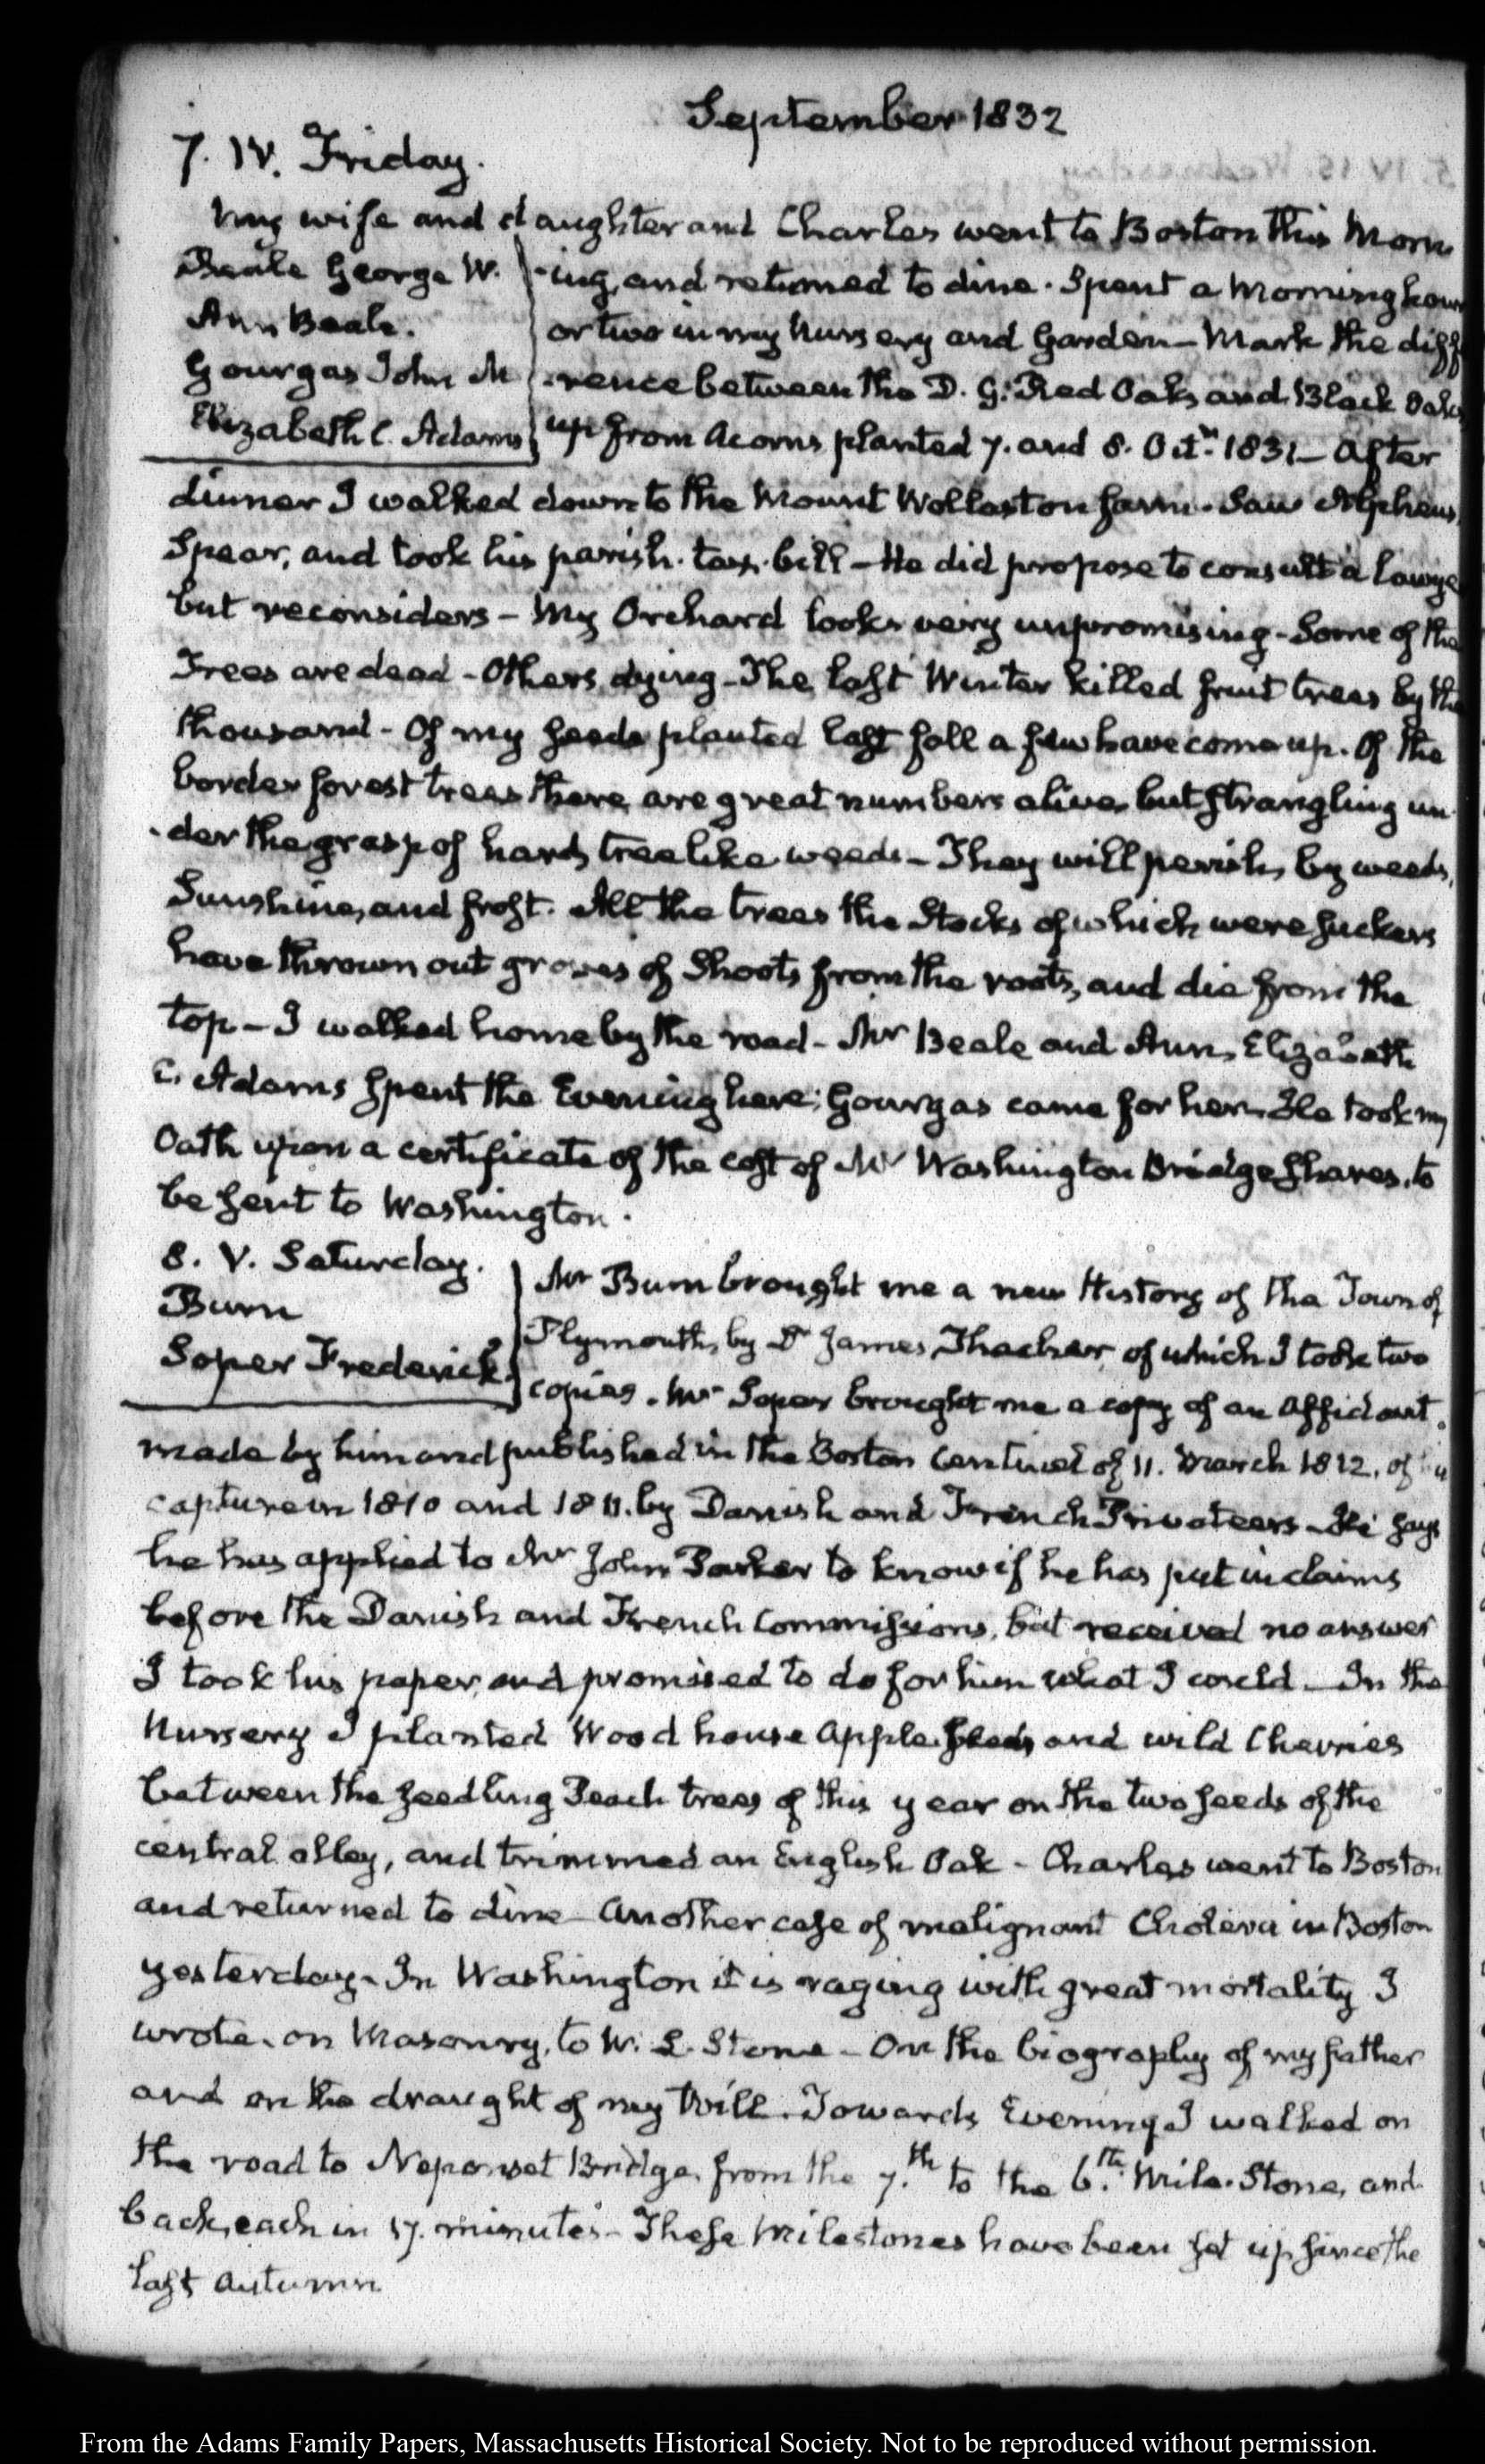 September 1832
7. IV. Friday.
My wife and daughter and Charles went to Boston this Morn
Beale George W.
Ann Beale.
Gourgas John M
Elizabeth C. Adams
-ing, and returned to dine. Spent a Morning hour
or two in my Nursery and Garden — Mark the diff
-rence between the D. G. Red Oaks and Black Oaks
up from Acorns planted 7. and 8. Octr. 1831 — After
dinner I walked down to the Mount Wollaston farm. Saw Alpheus
Spear, and took his parish tax bill — He did propose to consult a lawye
but reconsiders — My Orchard looks very unpromising — Some of the
Trees are dead — Others dying — The last Winter killed fruit trees by the
thousand — Of my seeds planted last fall a few have come up. Of the
border forest trees there are great numbers alive but strangling un
-der the grasp of hardy tree like weeds — They will perish by weeds,
Sunshine, and frost. All the trees the Stocks of which were suckers
have thrown out groves of Shoots from the roots, and die from the
top — I walked home by the road — Mr Beale and Ann, Elizabeth
C. Adams spent the Evening here; Gourgas came for her. He took my
Oath upon a certificate of the cost of Mr Washington Bridge shares, to
be sent to Washington.
8. V. Saturday.
Burn
Soper Frederick
Mr Burn brought me a new History of the Town of
Plymouth, by Dr James Thacher, of which I took two
copies. Mr Soper brought me a copy of an Affidavit
made by him and published in the Boston Centinel of 11. March 1812, of his
capture in 1810 and 1811. by Danish and French Privateers — He says
he has applied to Mr John Parker to know if he has put in claims
before the Danish and French Commissions, but received no answer
I took his paper, and promised to do for him what I could — In the
Nursery I planted Wood house Apple seeds and wild Cherries
between the seedling Peach trees of this year on the two seeds of the
central alley, and trimmed an English Oak — Charles went to Boston
and returned to dine — Another case of malignant Cholera in Boston
yesterday — In Washington it is raging with great mortality I
wrote, on Masonry, to W. L. Stone — On the biography of my father
and on the draught of my Will. Towards Evening I walked on
the road to Neponset Bridge, from the 7.th to the 6.th Mile-Stone, and
back, each in 17. minutes — These Milestones have been set up since the
last autumn
From the Adams Family Papers, Massachusetts Historical Society. Not to be reproduced without permission.